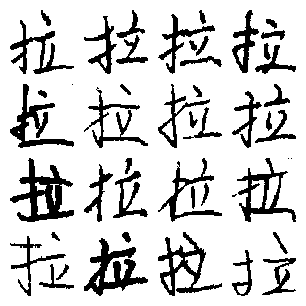 拉拉拉拉
拉拉拉拉
拉拉拉拉
拉拉拉拉